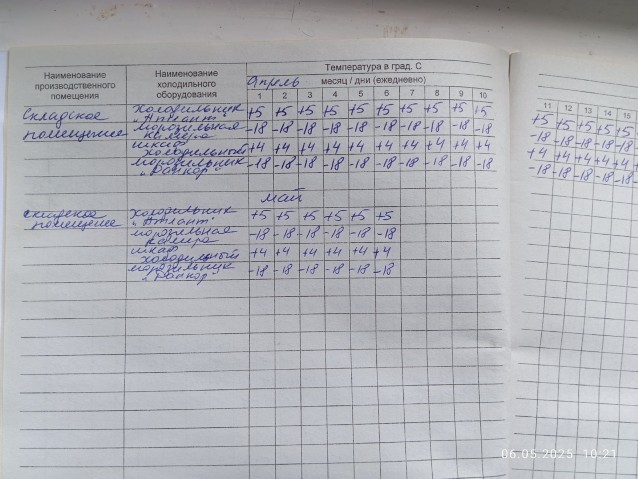 Наименование производственного помещения
Наименование холодильного оборудования
Температура в град. С
Апрель месяц / дни (ежедневно)
1 2 3 4 5 6 7 8 9 10
11 12 13 14 15
Складское помещение
холодильник "Атлант" +5 +5 +5 +5 +5 +5 +5 +5 +5 +5
+5 +5 +5 +5 +5
морозильная камера -18 -18 -18 -18 -18 -18 -18 -18 -18 -18
-18 -18 -18 -18 -18
шкаф холодильный +4 +4 +4 +4 +4 +4 +4 +4 +4 +4
+4 +4 +4 +4 +4
морозильник -18 -18 -18 -18 -18 -18 -18 -18 -18 -18
-18 -18 -18 -18 -18
май
складское помещение
холодильник "Атлант" +5 +5 +5 +5 +5 +5
морозильная камера -18 -18 -18 -18 -18 -18
шкаф холодильный +4 +4 +4 +4 +4 +4
морозильник -18 -18 -18 -18 -18 -18
06.05.2025 10:21